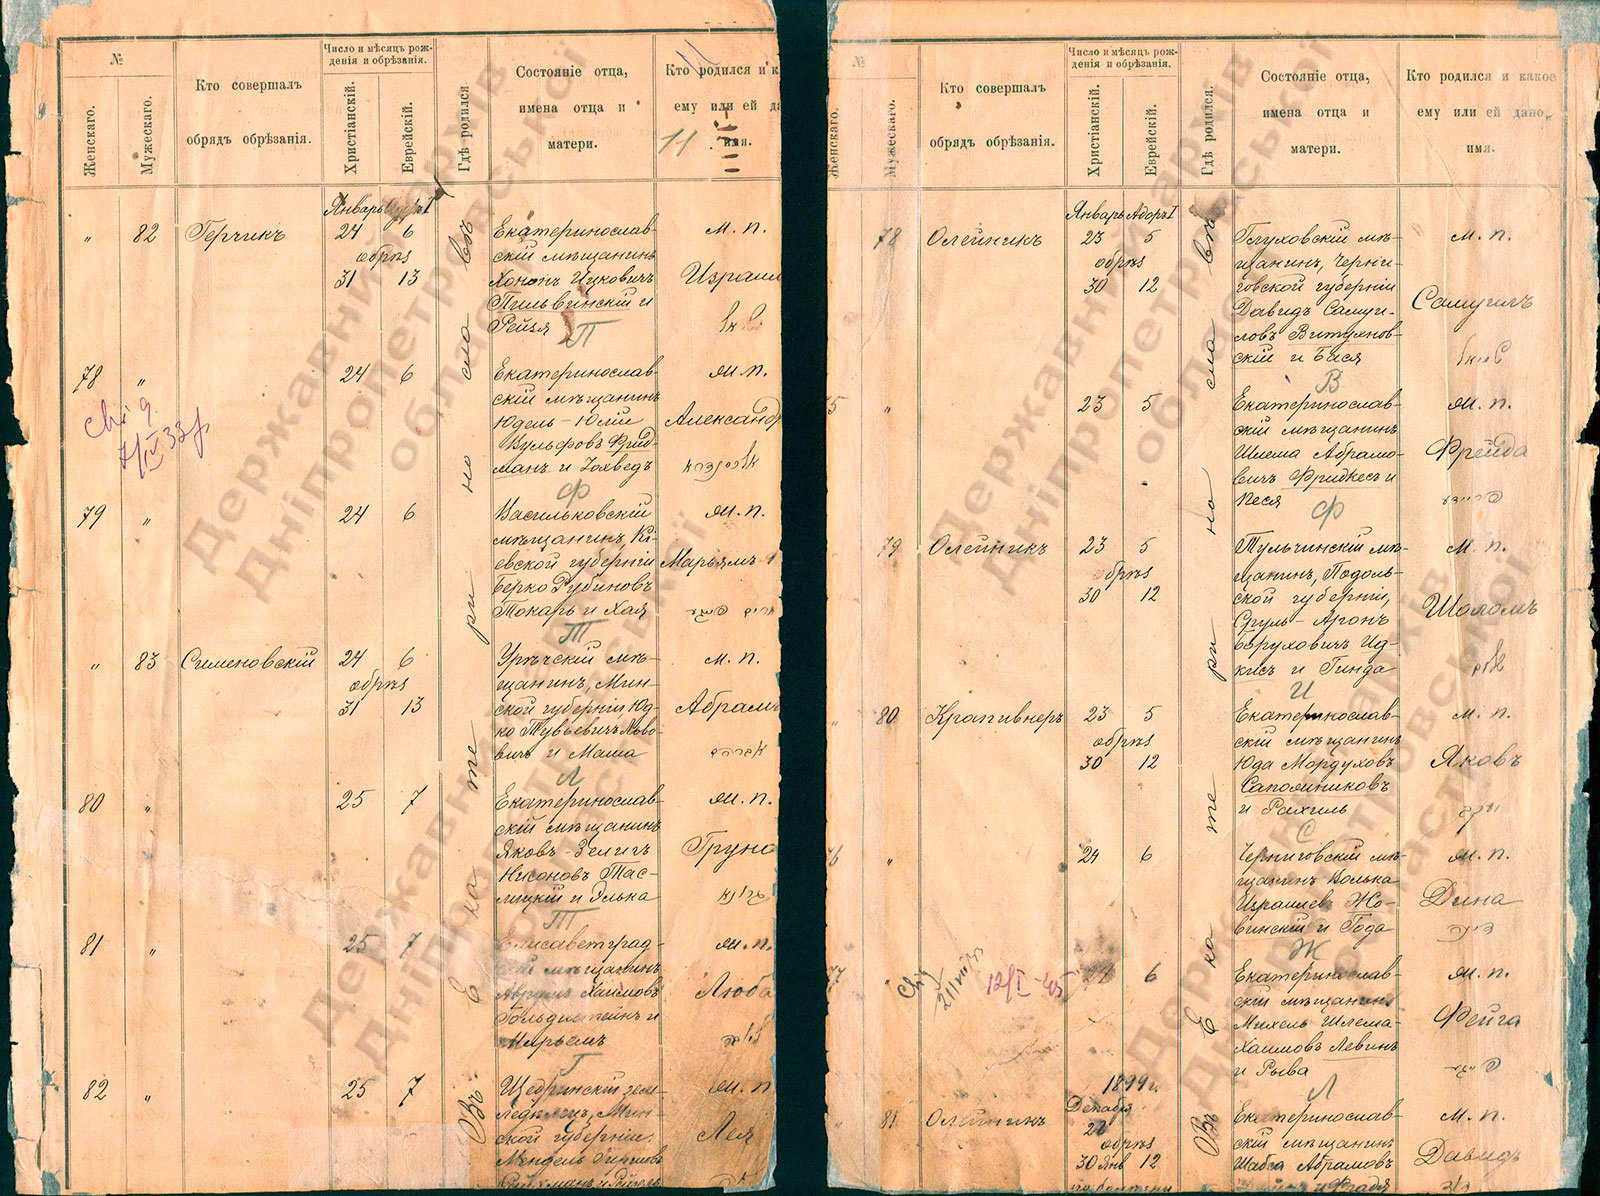 №
Женскаго.
Мужескаго.
Кто совершалъ
обрядъ обрѣзанія.
Число и мѣсяцъ рож-
денія и обрѣзанія.
Христіанскій.
Еврейскій.
Гдѣ родился
Состояніе отца,
имена отца и
матери.
Кто родился и к
ему или ей да
имя.
11
11
Въ Екатеринославѣ
Январь
" 82 Герчикъ 24 6
обрѣз
31 13
Екатеринослав-
скій мѣщанинъ
Хононъ Ицковичъ
Пильвинскій и
Рейзя
П
м. п.
Израил
78 " 24 6
Екатеринослав-
скій мѣщанинъ
Юдель-Юлій
Вульфовъ Фрид-
манъ и Іохведъ
Ф
ж. п.
Александр
79 " 24 6
Васильковскій
мѣщанинъ, Кі-
евской губерніи
Берко Рубиновъ
Токарь и Хая
Т
ж. п.
Марьямъ
" 83 Сименовскій 24 6
обрѣз
31 13
мѣ-
щанинъ, Мин-
ской губерніи Юд-
ко Тувьевичъ Льво-
вичъ и Маша
Л
м. п.
Абрамъ
אברהם
80 " 25 7
Екатеринослав-
скій мѣщанинъ
Яковъ-Зеличъ
Нисоновъ Тас-
лицкій и Элька
Т
ж. п.
Груня
81 " 25 7
Елисаветград-
скій мѣщанинъ
Аврумъ Хаимовъ
Гольдштейнъ и
Марьемъ
Г
ж. п.
Люба
82 " 25 7
Щедринскій зем-
ледѣлецъ, Мин-
ской губерніи,
Мендель
ж. п
Лея
№
Женскаго.
Мужескаго.
Кто совершалъ
обрядъ обрѣзанія.
Число и мѣсяцъ рож-
денія и обрѣзанія.
Христіанскій.
Еврейскій.
Гдѣ родился.
Состояніе отца,
имена отца и
матери.
Кто родился и какое
ему или ей дано
имя.
Въ Екатеринославѣ
Январь Адоръ I
78 Олейникъ 23 5
обрѣз
30 12
Глуховскій мѣ-
щанинъ, Черни-
говской губерніи
Давидъ Самуи-
ловъ Витухнов-
скій и Бася
В
м. п.
Самуилъ
75 " 23 5
Екатеринослав-
скій мѣщанинъ
Шлема Абрамо-
вичъ Фридкесъ и
Песя
Ф
ж. п.
Фрейда
פריידע
79 Олейникъ 23 5
обрѣз
30 12
Тульчинскій мѣ-
щанинъ, Подоль-
ской губерніи,
Сруль-Аронъ
Боруховичъ Ид-
кисъ и Гинда
И
м. п.
Шоломъ
שלום
" 80 Крапивнеръ 23 5
обрѣз
30 12
Екатеринослав-
скій мѣщанинъ
Юда Мордуховъ
Сапожниковъ
и Рахиль
С
м. п.
Яковъ
יעקב
76 " 24 6
Черниговскій мѣ-
щанинъ Волька
Израилевъ Жо-
винскій и Года
Ж
ж. п.
Дина
דינה
77 24 6
12/I-45
Екатеринослав-
скій мѣщанинъ
Михель Шлема-
Хаимовъ Левинъ
и Рыва
Л
ж. п.
Фейга
פייגע
1899 г.
Декабря
" 81 Олейникъ 22
обрѣз
30 Янв 12
Екатеринослав-
скій мѣщанинъ
Шабса Абрамовъ
м. п.
Давидъ
Державний архів
Дніпропетровської
області